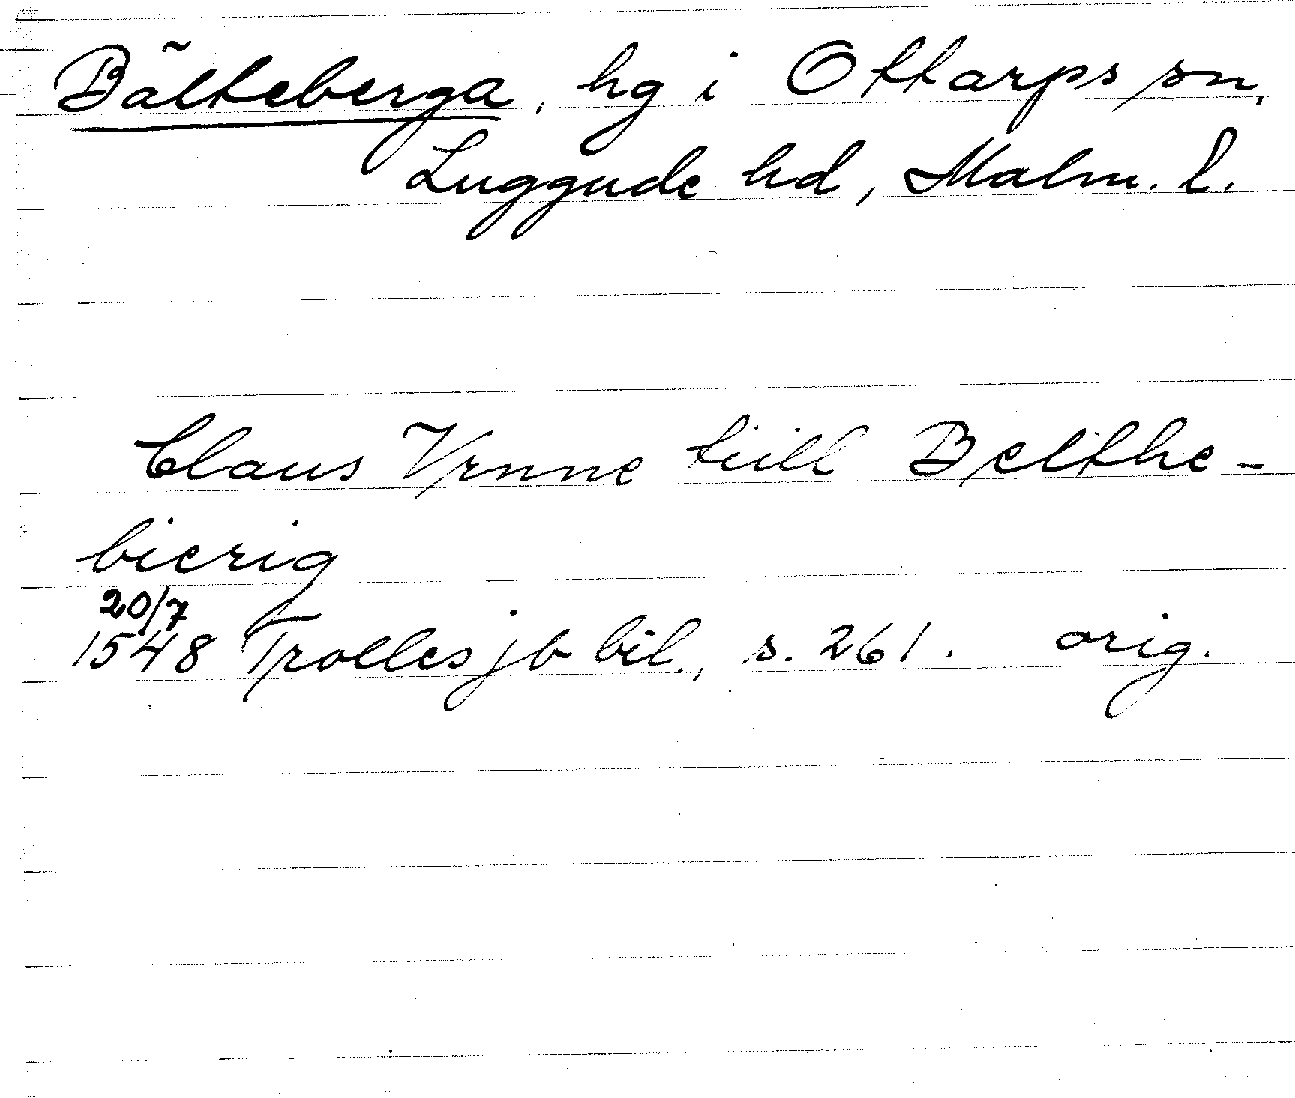 Bälteberga, hg i Ottarps sn,
Luggude hd, Malm. l.
Claus Vrnne tiill Belthe-
bierig
20/7
1548 Trolles jb bil., s. 261. orig.